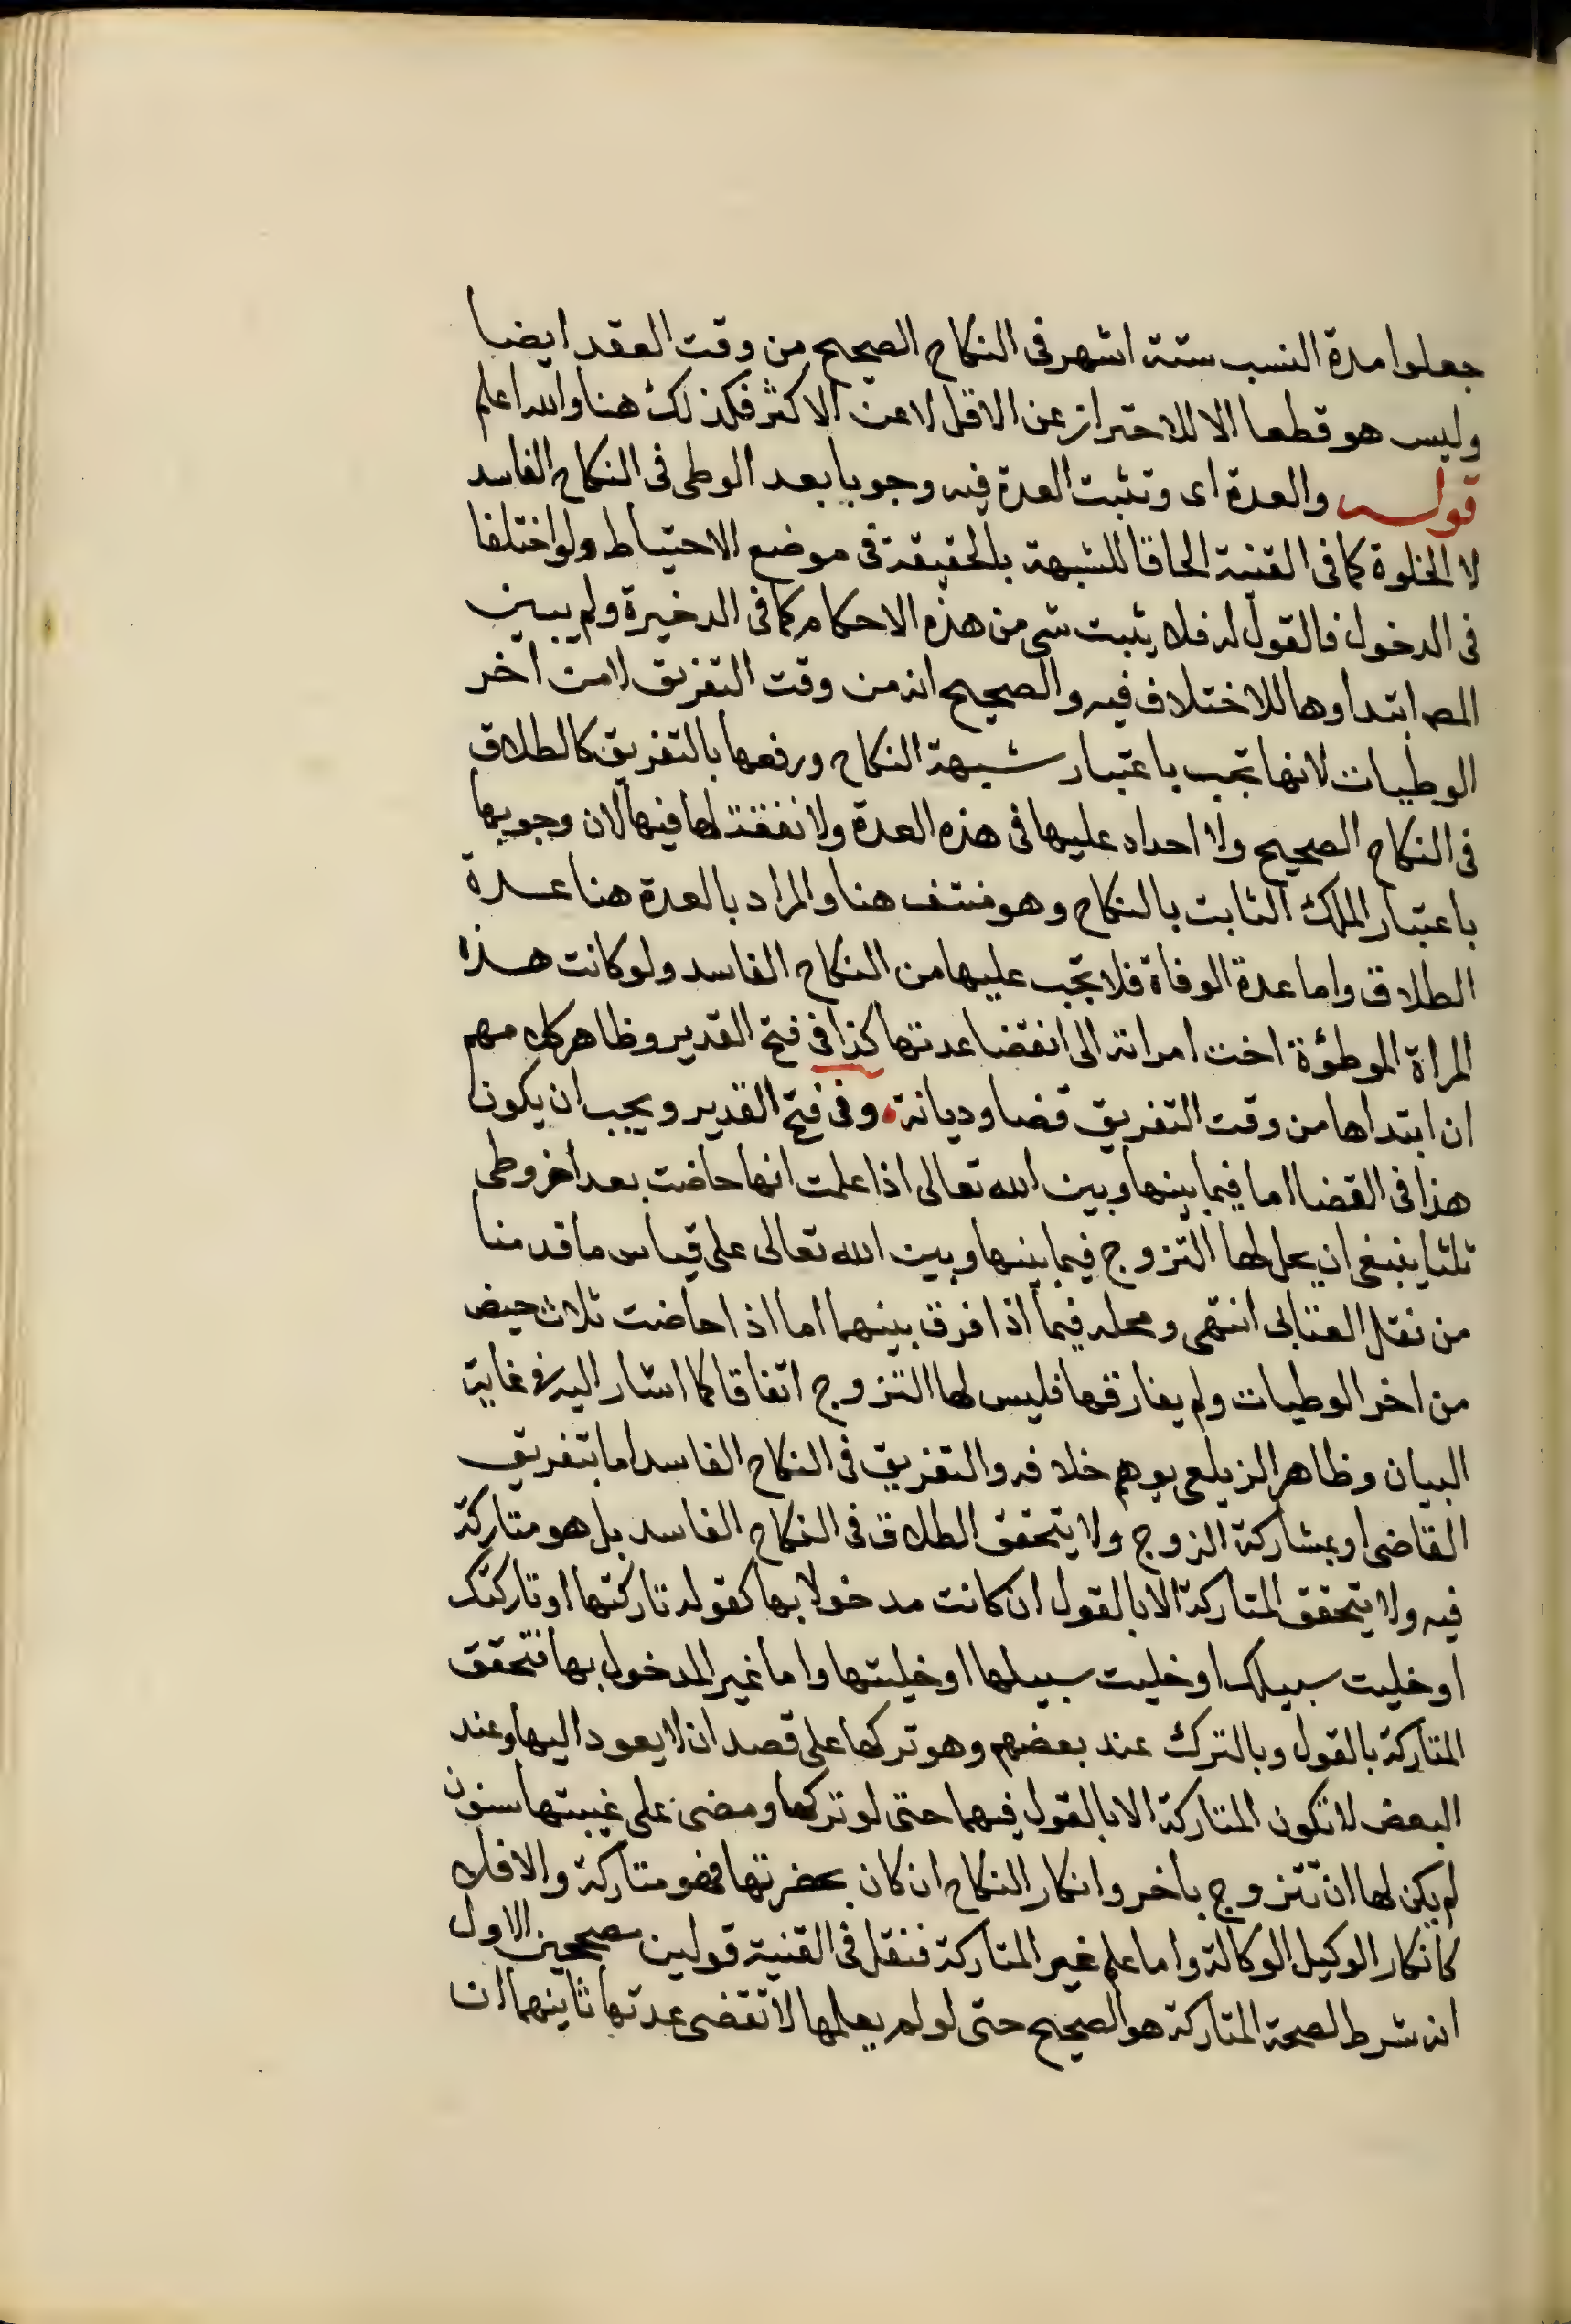 جعلوا مدة النسب ستة اشهر فى النكاح الصحيح من وقت العقد ايضا
وليس هو قطعا الا للاحتراز عن الاقل لا عن الاكثر فكذلك هنا والله اعلم
قوله والعدة اى وتثبت العدة فيه وجوبا بعد الوطى فى النكاح الفاسد
لا الخلوة كما فى القنية الحاقا للشبهة بالحقيقة فى موضع الاحتياط ولو اختلفا
فى الدخول فالقول له فلا يثبت شى من هذه الاحكام كما فى الدخيرة ولم يبين
المص ابتداوها للاختلاف فيه والصحيح انه من وقت التفريق لا من اخر
الوطيات لانها تجب باعتبار شبهة النكاح ورفعها بالتفريق كالطلاق
فى النكاح الصحيح ولا احداد عليها فى هذه العدة ولا نفقة لها فيها لان وجوبها
باعتبار الملك الثابت بالنكاح وهو منتف هنا والمراد بالعدة هنا عدة
الطلاق واما عدة الوفاة فلا تجب عليها من النكاح الفاسد ولو كانت هذه
المراة الموطؤة اخت امراته الى انقضا عدتها كذا فى فتح القدير وظاهر كلامهم
ان ابتداها من وقت التفريق قضا وديانة وفى فتح القدير ويجب ان يكون
هذا فى القضا اما فيما بينها وبين الله تعالى اذا علمت انها حاضت بعد اخر وطى
ثلثا ينبغى ان يحل لها التزوج فيما بينها وبين الله تعالى على قياس ما قدمنا
من نقل العتابى انتهى ومحله فيما اذا فرق بينهما اما اذا حاضت ثلاث حيض
من اخر الوطيات ولم يفارقها فليس لها التزوج اتفاقا كما اشار اليه فى غاية
البيان وظاهر الزيلعى يوهم خلافه والتفريق فى النكاح الفاسد اما بتفريق
القاضى او بمشاركة الزوج ولا يتحقق الطلاق فى النكاح الفاسد بل هو متاركة
فيه ولا يتحقق المتاركة الا بالقول ان كانت مدخولا بها كقوله تاركتها او تاركتك
او خليت سبيلك او خليت سبيلها او خليتها واما غير المدخول بها فتحقق
المتاركة بالقول وبالترك عند بعضهم وهو تركها على قصد ان لا يعود اليها وعند
البعض لا تكون المتاركة الا بالقول فيهما حتى لو تركها ومضى على غيبتها سنون
لم يكن لها ان تتزوج باخر وانكار النكاح ان كان بحضرتها فهو متاركة والا فلا
كانكار الوكيل الوكالة واما علم غير المتاركة فنقل فى القنية قولين مصححين الاول
انه شرط لصحة المتاركة هو الصحيح حتى لو لم يعلمها لا تنقضى عدتها ثانيهما ان